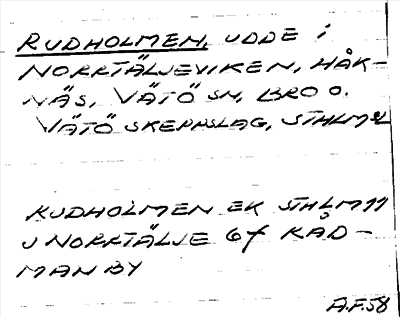 RUDHOLMEN, UDDE i
NORRTÄLJEVIKEN, HÅK-
NÄS, VÄTÖ SN, BRO O.
VÄTÖ SKEPPSLAG, STHLMSL
RUDHOLMEN EK STHLM 99
J NORRTÄLJE 67 KÅD-
MANBY
A.F.58